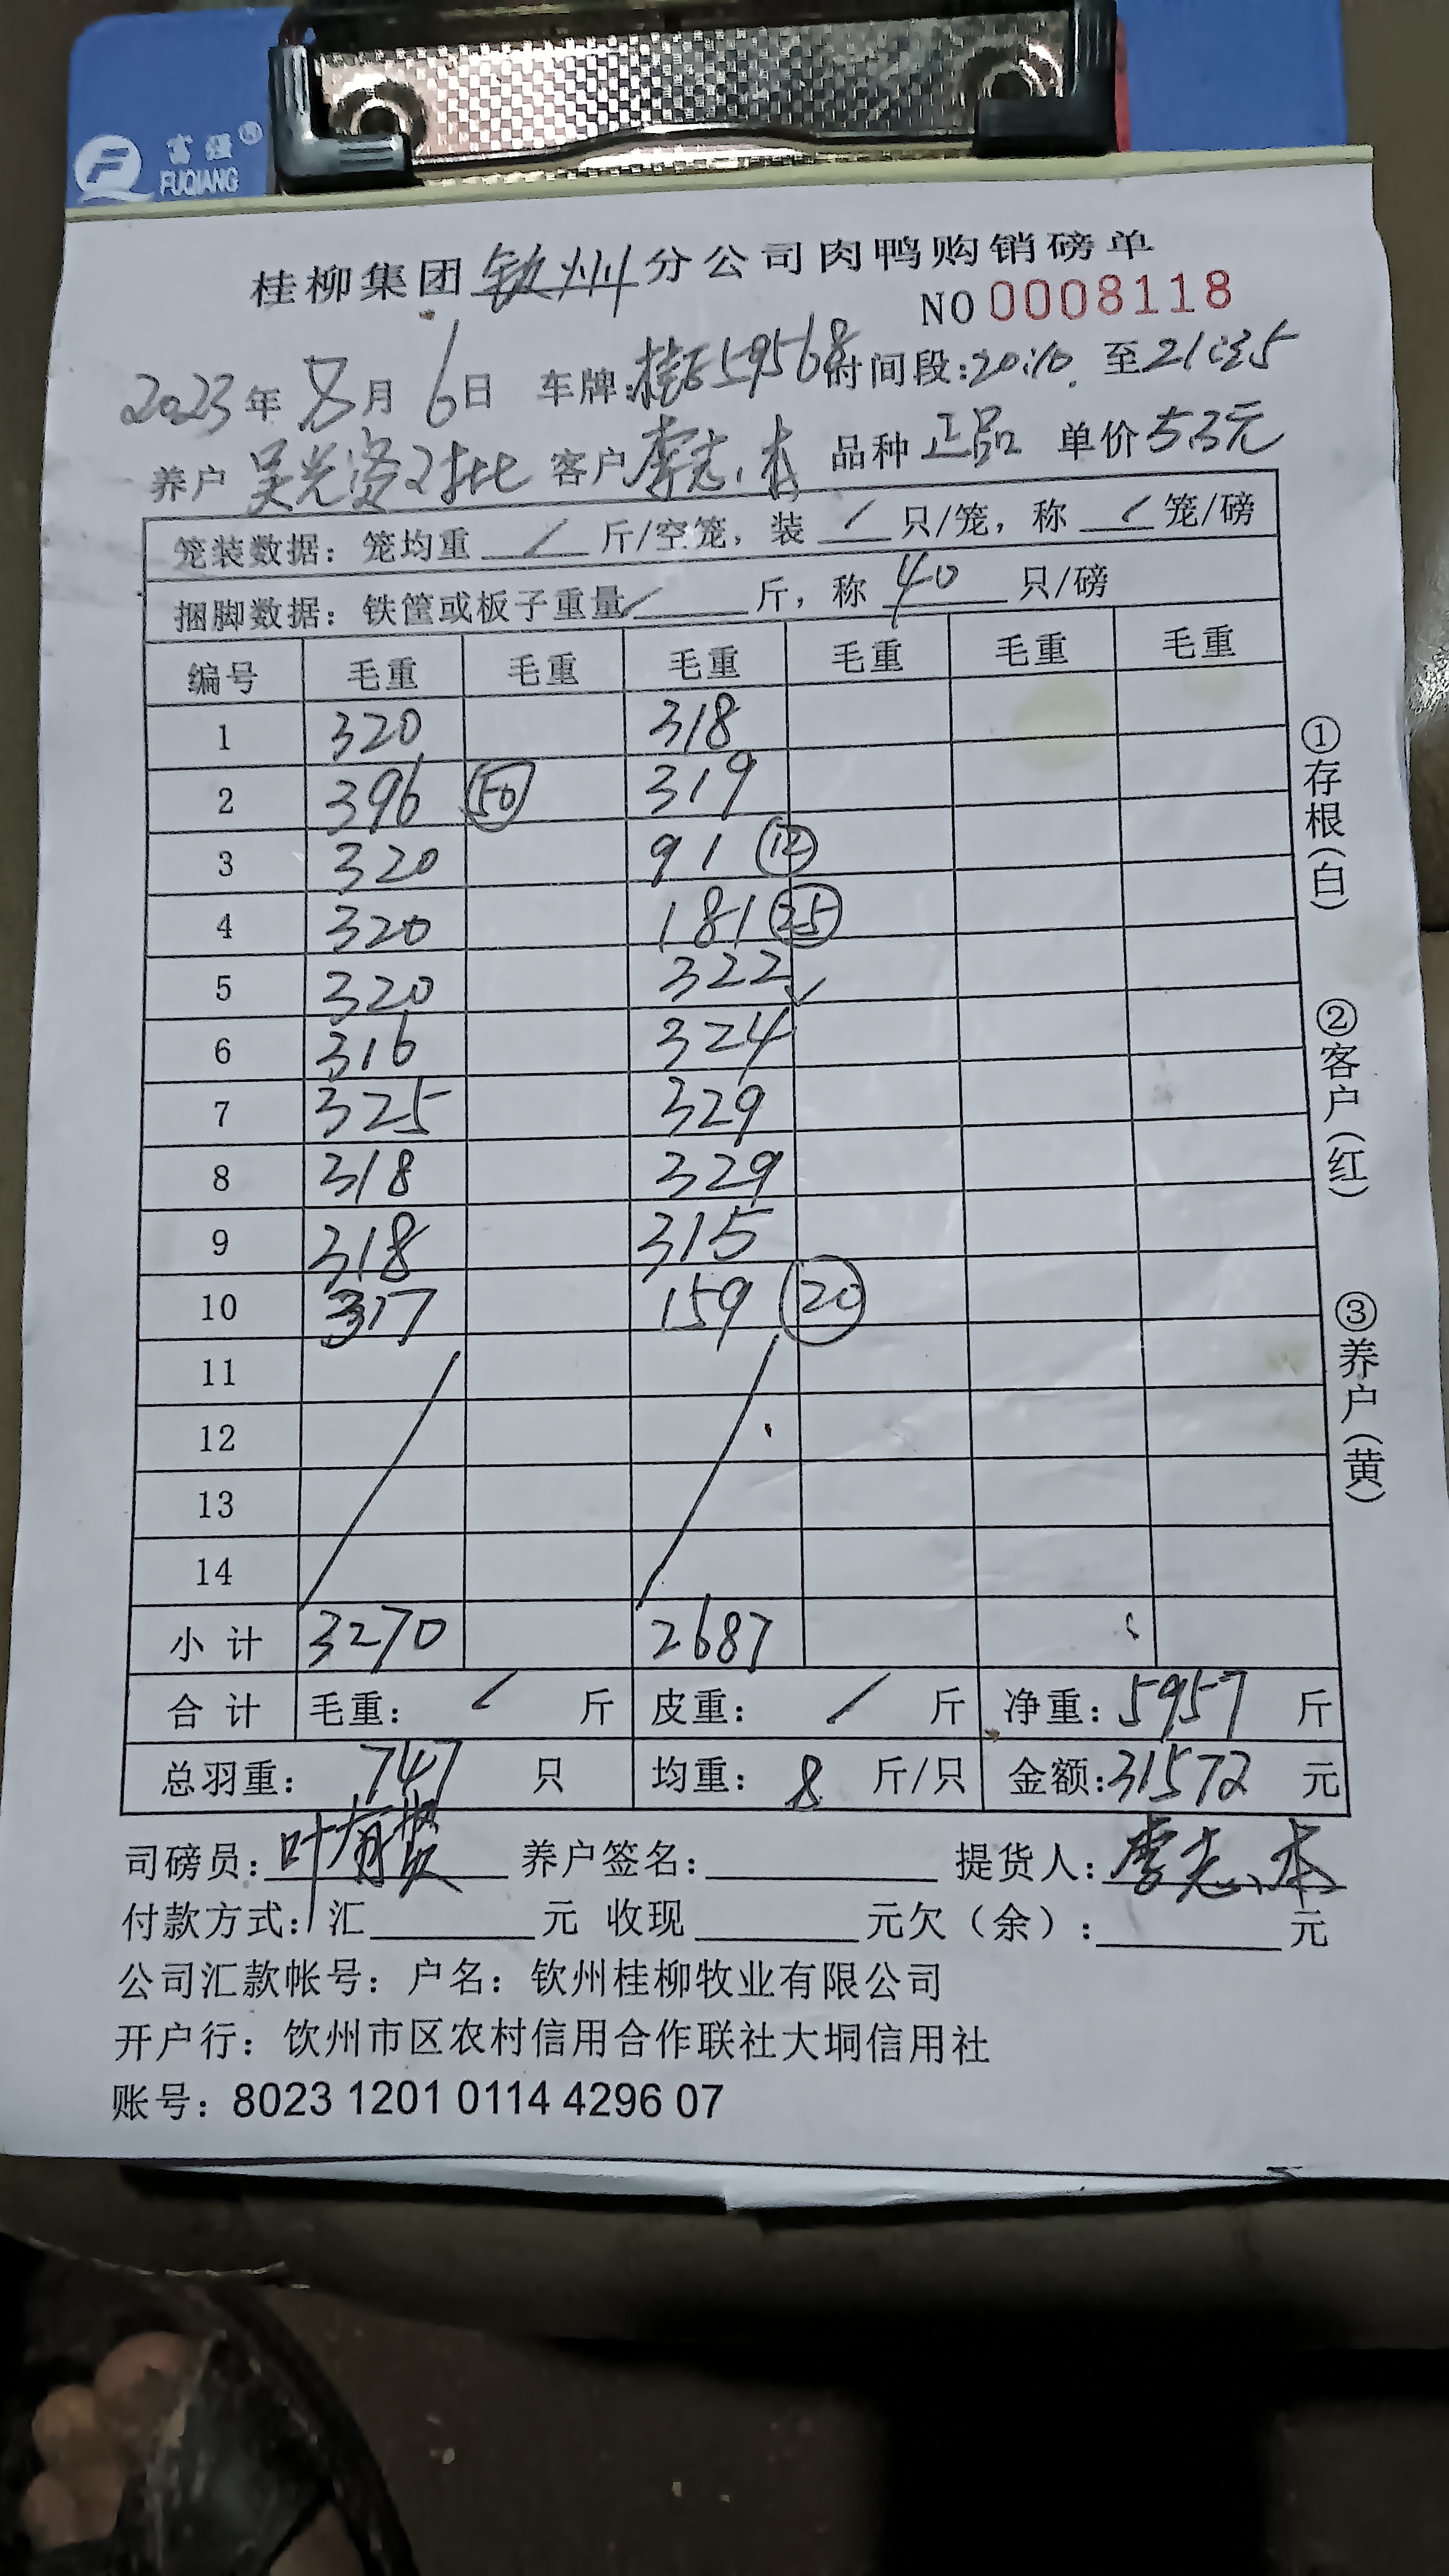 富强®
FUQIANG
桂柳集团钦州分公司肉鸭购销磅单
NO 0008118
2023年8月6日 车牌:桂E59568 时间段:20:10 至21:35
养户 吴光 2批 客户李志本 品种 正品 单价5.3元
笼装数据: 笼均重 / 斤/空笼, 装 / 只/笼, 称 / 笼/磅
捆脚数据: 铁筐或板子重量 / 斤, 称 40 只/磅
编号 毛重 毛重 毛重 毛重 毛重 毛重
1 320 318
2 396 (50) 319
3 320 91 (12)
4 320 181 (25)
5 320 322 ✓
6 316 324
7 325 329
8 318 329
9 318 315
10 317 159 (20)
11
12
13
14
小计 3270 2687
合计 毛重: / 斤 皮重: / 斤 净重: 5957 斤
总羽重: 747 只 均重: 8 斤/只 金额:31572 元
司磅员: 叶 养户签名: 提货人: 李志本
付款方式: 汇 元 收现 元欠(余): 元
公司汇款帐号: 户名: 钦州桂柳牧业有限公司
开户行: 饮州市区农村信用合作联社大垌信用社
账号: 8023 1201 0114 4296 07
①存根(白)
②客户(红)
③养户(黄)